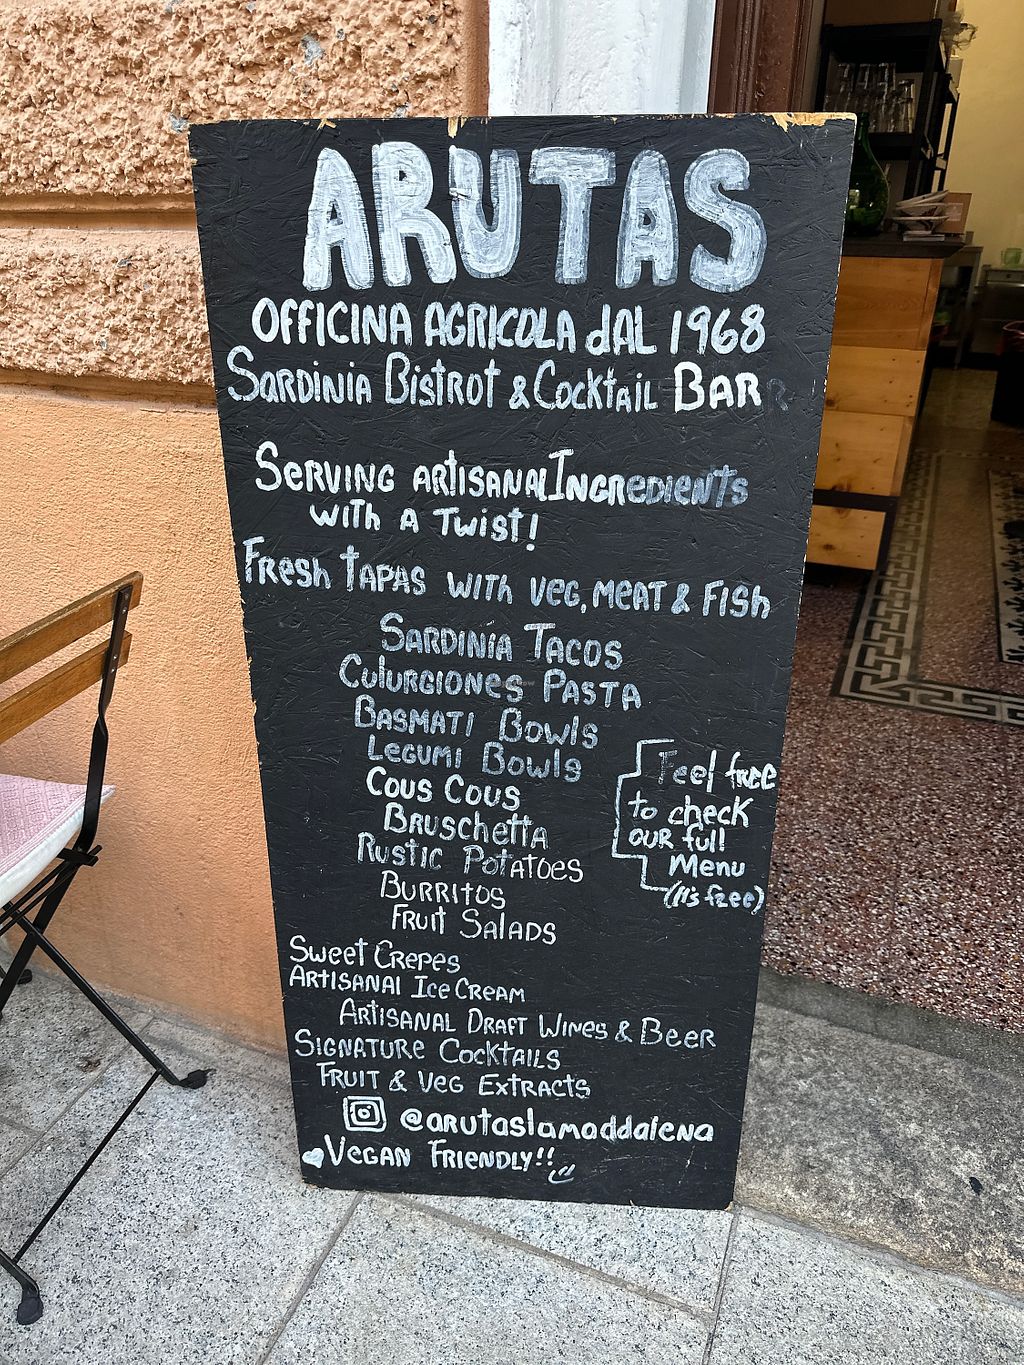 ARUTAS
OFFICINA AGRICOLA dAL 1968
SARDINIA BISTROT & COCKTAIL BAR
SERVING ARTISANAL INGREDIENTS
WITH A TWIST!
FRESH TAPAS WITH VEG, MEAT & FISH
SARDINIA TACOS
CULURGIONES PASTA
BASMATI BOWLS
LEGUMI BOWLS
COUS COUS
BRUSCHETTA
RUSTIC POTATOES
BURRITOS
FRUIT SALADS
Feel free
to check
our full
Menu
(It's free)
SWEET CREPES
ARTISANAL ICE CREAM
ARTISANAL DRAFT WINES & BEER
SIGNATURE COCKTAILS
FRUIT & VEG EXTRACTS
@arutaslamaddalena
VEGAN FRIENDLY!!